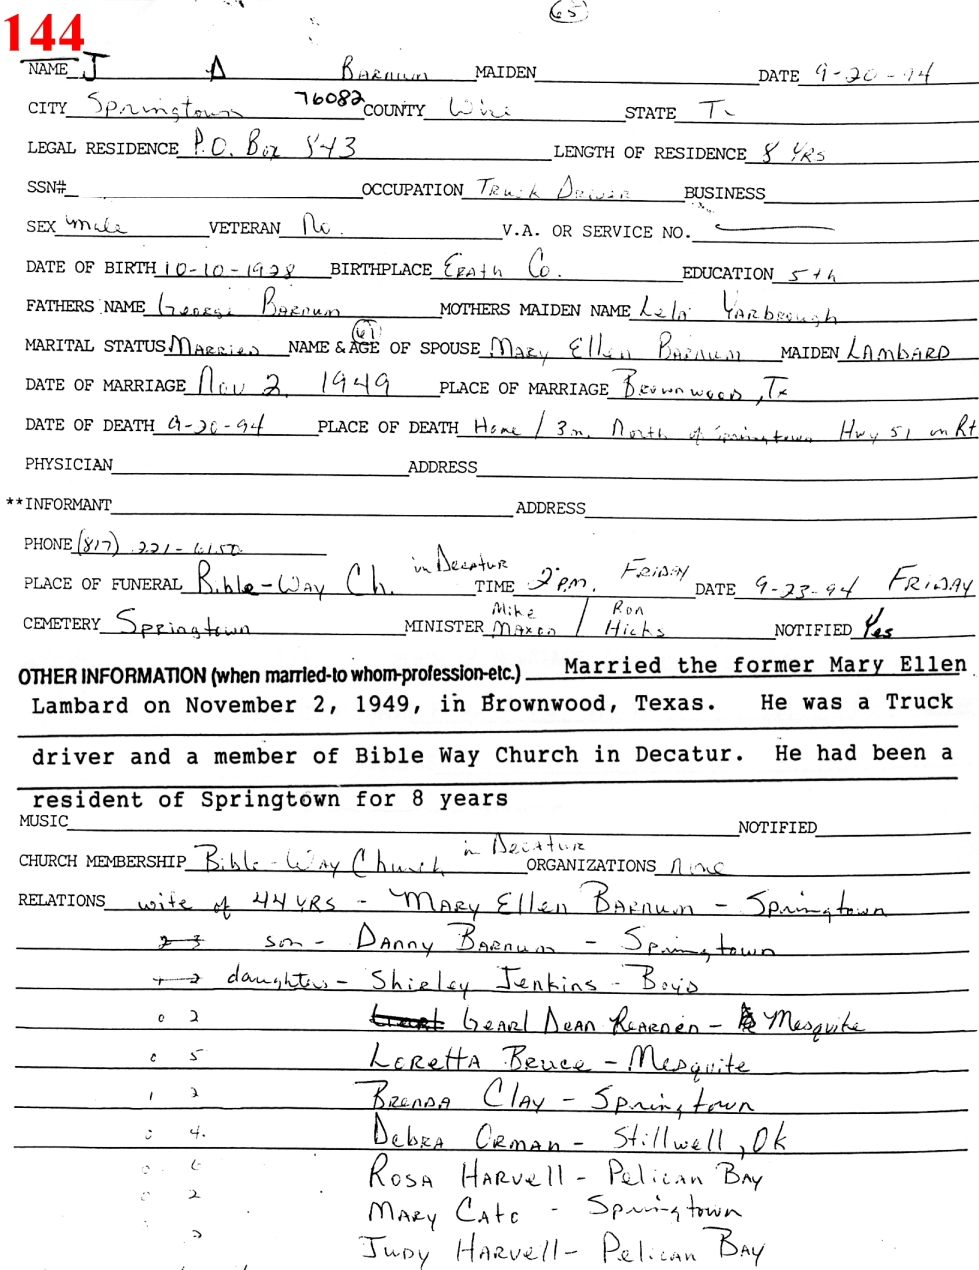 65
144
NAME J D Barnum MAIDEN DATE 9-20-94
CITY Springtown 76082 COUNTY Wise STATE Tx
LEGAL RESIDENCE P.O. Box 843 LENGTH OF RESIDENCE 8 YRS
SSN# OCCUPATION Truck Driver BUSINESS
SEX male VETERAN No. V.A. OR SERVICE NO.
DATE OF BIRTH 10-10-1928 BIRTHPLACE Erath Co. EDUCATION 5th
FATHERS NAME George Barnum MOTHERS MAIDEN NAME Lela Yarbrough
MARITAL STATUS Married NAME & AGE OF SPOUSE (61) Mary Ellen Barnum MAIDEN LAMBARD
DATE OF MARRIAGE Nov 2 1949 PLACE OF MARRIAGE Brownwood, Tx
DATE OF DEATH 9-20-94 PLACE OF DEATH Home / 3m. North of Springtown Hwy 51 on Rt
PHYSICIAN ADDRESS
**INFORMANT ADDRESS
PHONE (817) 221-6150
PLACE OF FUNERAL Bible-Way Ch. in Decatur TIME 2 p.m. FRIDAY DATE 9-23-94 FRIDAY
CEMETERY Springtown MINISTER Mike Maxen / Ron Hicks NOTIFIED Yes
OTHER INFORMATION (when married-to whom-profession-etc.) Married the former Mary Ellen
Lambard on November 2, 1949, in Brownwood, Texas. He was a Truck
driver and a member of Bible Way Church in Decatur. He had been a
resident of Springtown for 8 years
MUSIC NOTIFIED
CHURCH MEMBERSHIP Bible-Way Church in Decatur ORGANIZATIONS None
RELATIONS wife of 44 YRS - Mary Ellen Barnum - Springtown
2 3 son - Danny Barnum - Springtown
2 daughters - Shirley Jenkins - Boyd
0 2 Gearl Dean Rearden - Mesquite
0 5 Loretta Bruce - Mesquite
1 2 Brenda Clay - Springtown
0 4. Debra Orman - Stillwell, Ok
0 6 Rosa Harvell - Pelican Bay
0 2 Mary Cato - Springtown
2 Judy Harvell - Pelican Bay